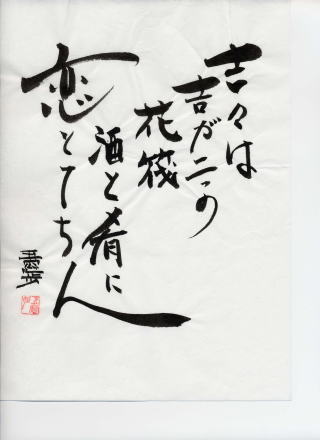 吉々は
吉が二つの
花筏
酒と肴に
恋とてちん